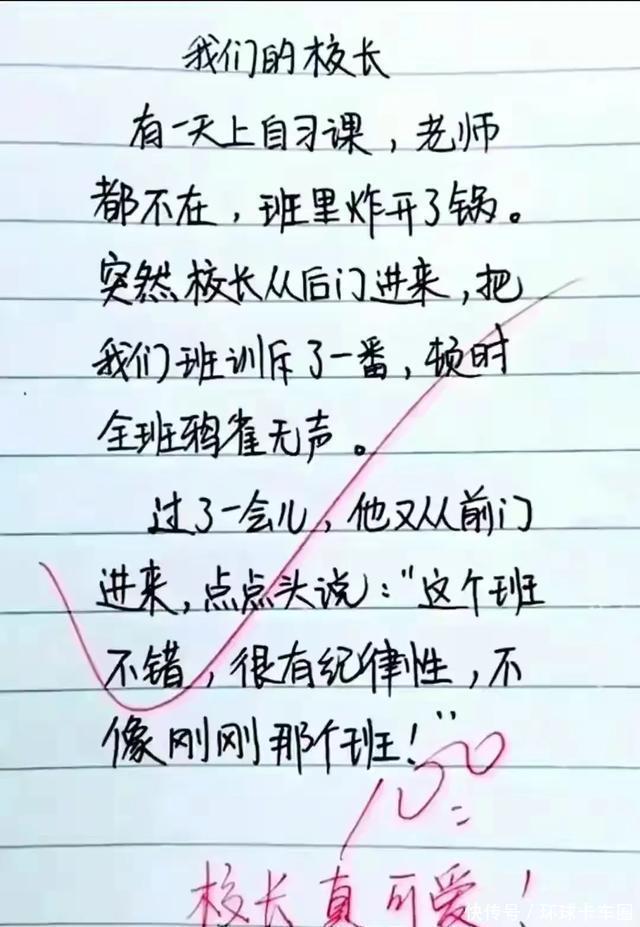 我们的校长
有一天上自习课，老师
都不在，班里炸开了锅。
突然校长从后门进来，把
我们班训斥了一番，顿时
全班鸦雀无声。
过了一会儿，他又从前门
进来，点点头说：“这个班
不错，很有纪律性，不
像刚刚那个班！”
100
校长真可爱！
快传号／环球卡车圈